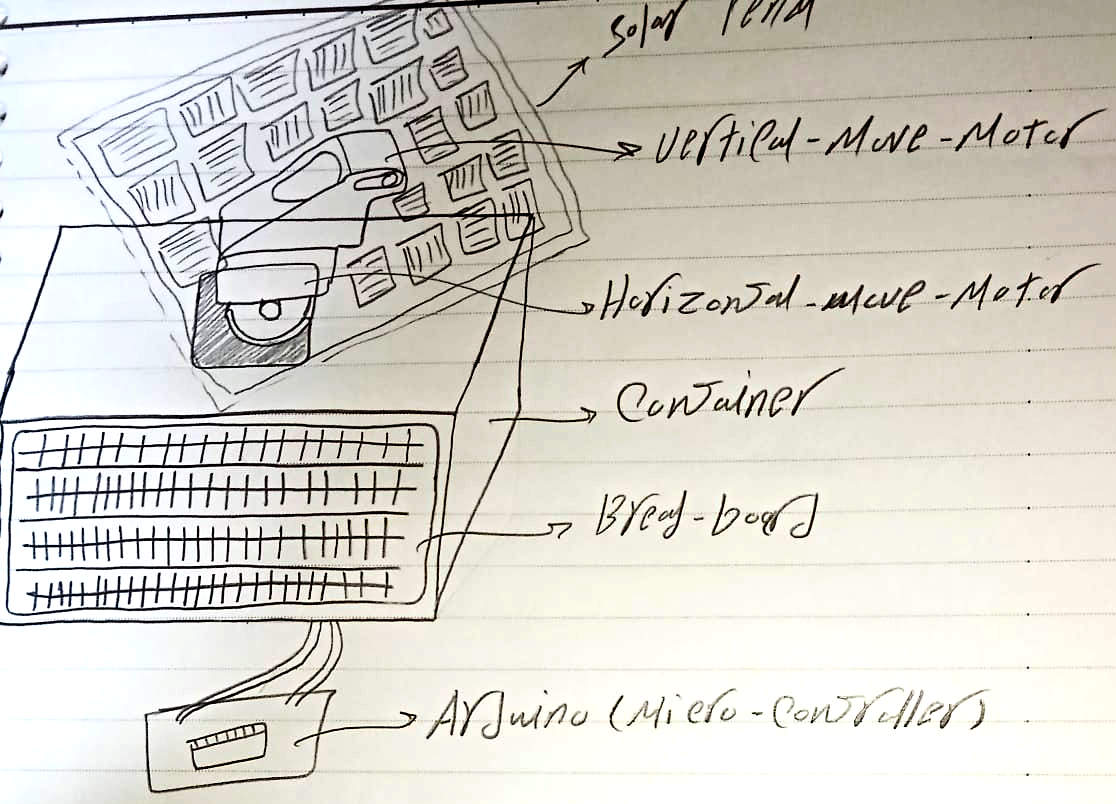 Solar Penal
Vertical-Move-Motor
Horizontal-move-Motor
Container
Bread-board
Arduino (Micro-Controller)